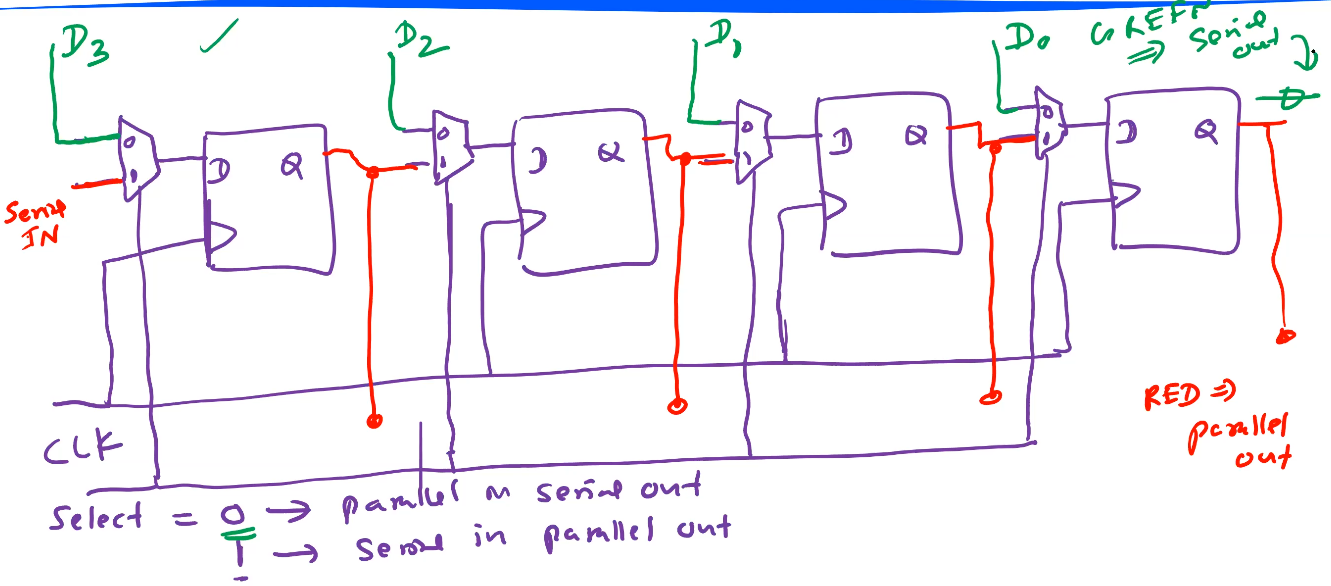 D3 ✓ D2 D1 D0 GREEN
⇒ Serial
out
0 0 0 0
1 1 1 1
D Q D Q D Q D Q
Serial
IN
RED ⇒
parallel
out
CLK
Select = 0 → parallel in serial out
1 → Serial in parallel out